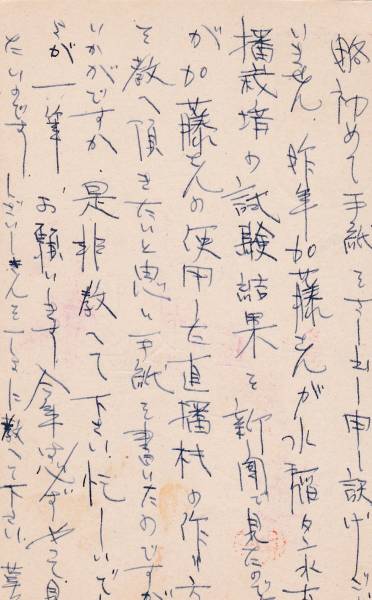 略 初めて手紙をさし出し申し訳けござ
いません、昨年加藤さんが水稲タン水直
播栽培の試験結果を新聞で見たのです
が加藤さんの使用した直播機の作り方
を教へ頂きたいと思い手紙を書いたのですが
いかがですか是非教へて下さい忙しいで
が一筆お願いします今年は必ずやって見
たいのです に教へて下さい